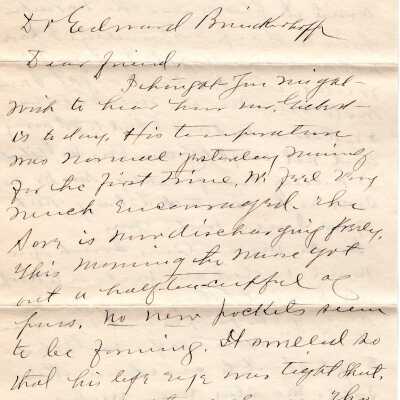 Dr Edward Brinckerhoff
Dear friend.
I thought you might
wish to hear how Mr.
is today. His temperature
was normal yesterday
for the first time. We feel very
much encouraged. The
Sore is now discharging freely.
This morning the nurse got
out a half teacupful of
puss. No new pockets seem
to be forming. It swelled so
that his left eye was tight shut.
The